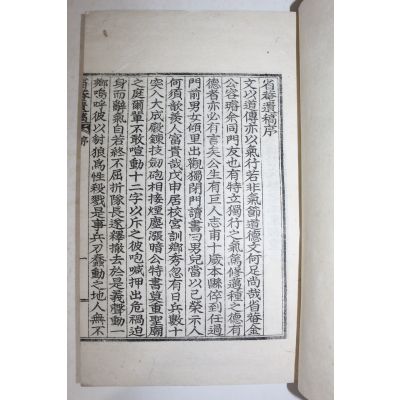 省菴遺稿序
文以道傳亦以氣行若非氣節道德文何足尚哉省菴金
公容瑢余同門友也有特立獨行之氣篤修邁種之德有
德者亦必有言矣公生有巨人志甫十歲本縣倅到任過
門前男女傾里出觀獨閉門讀書曰男兒當以己榮示人
何須歆羨人富貴哉戊申居校宮訓鄉秀忽有日兵數十
突入大成殿鍊技劒砲相接煙塵漲暗公特書莫重聖廟
之庭爾輩不敢喧動十二字以斥之彼咆喊押出危禍迫
身而辭氣自若終不屈折隊長遂釋撤去於是義聲動一
鄉嗚呼彼以豺狼爲性殺戮是事兵刃蠢動之地人無不
省菴遺稿 序 一